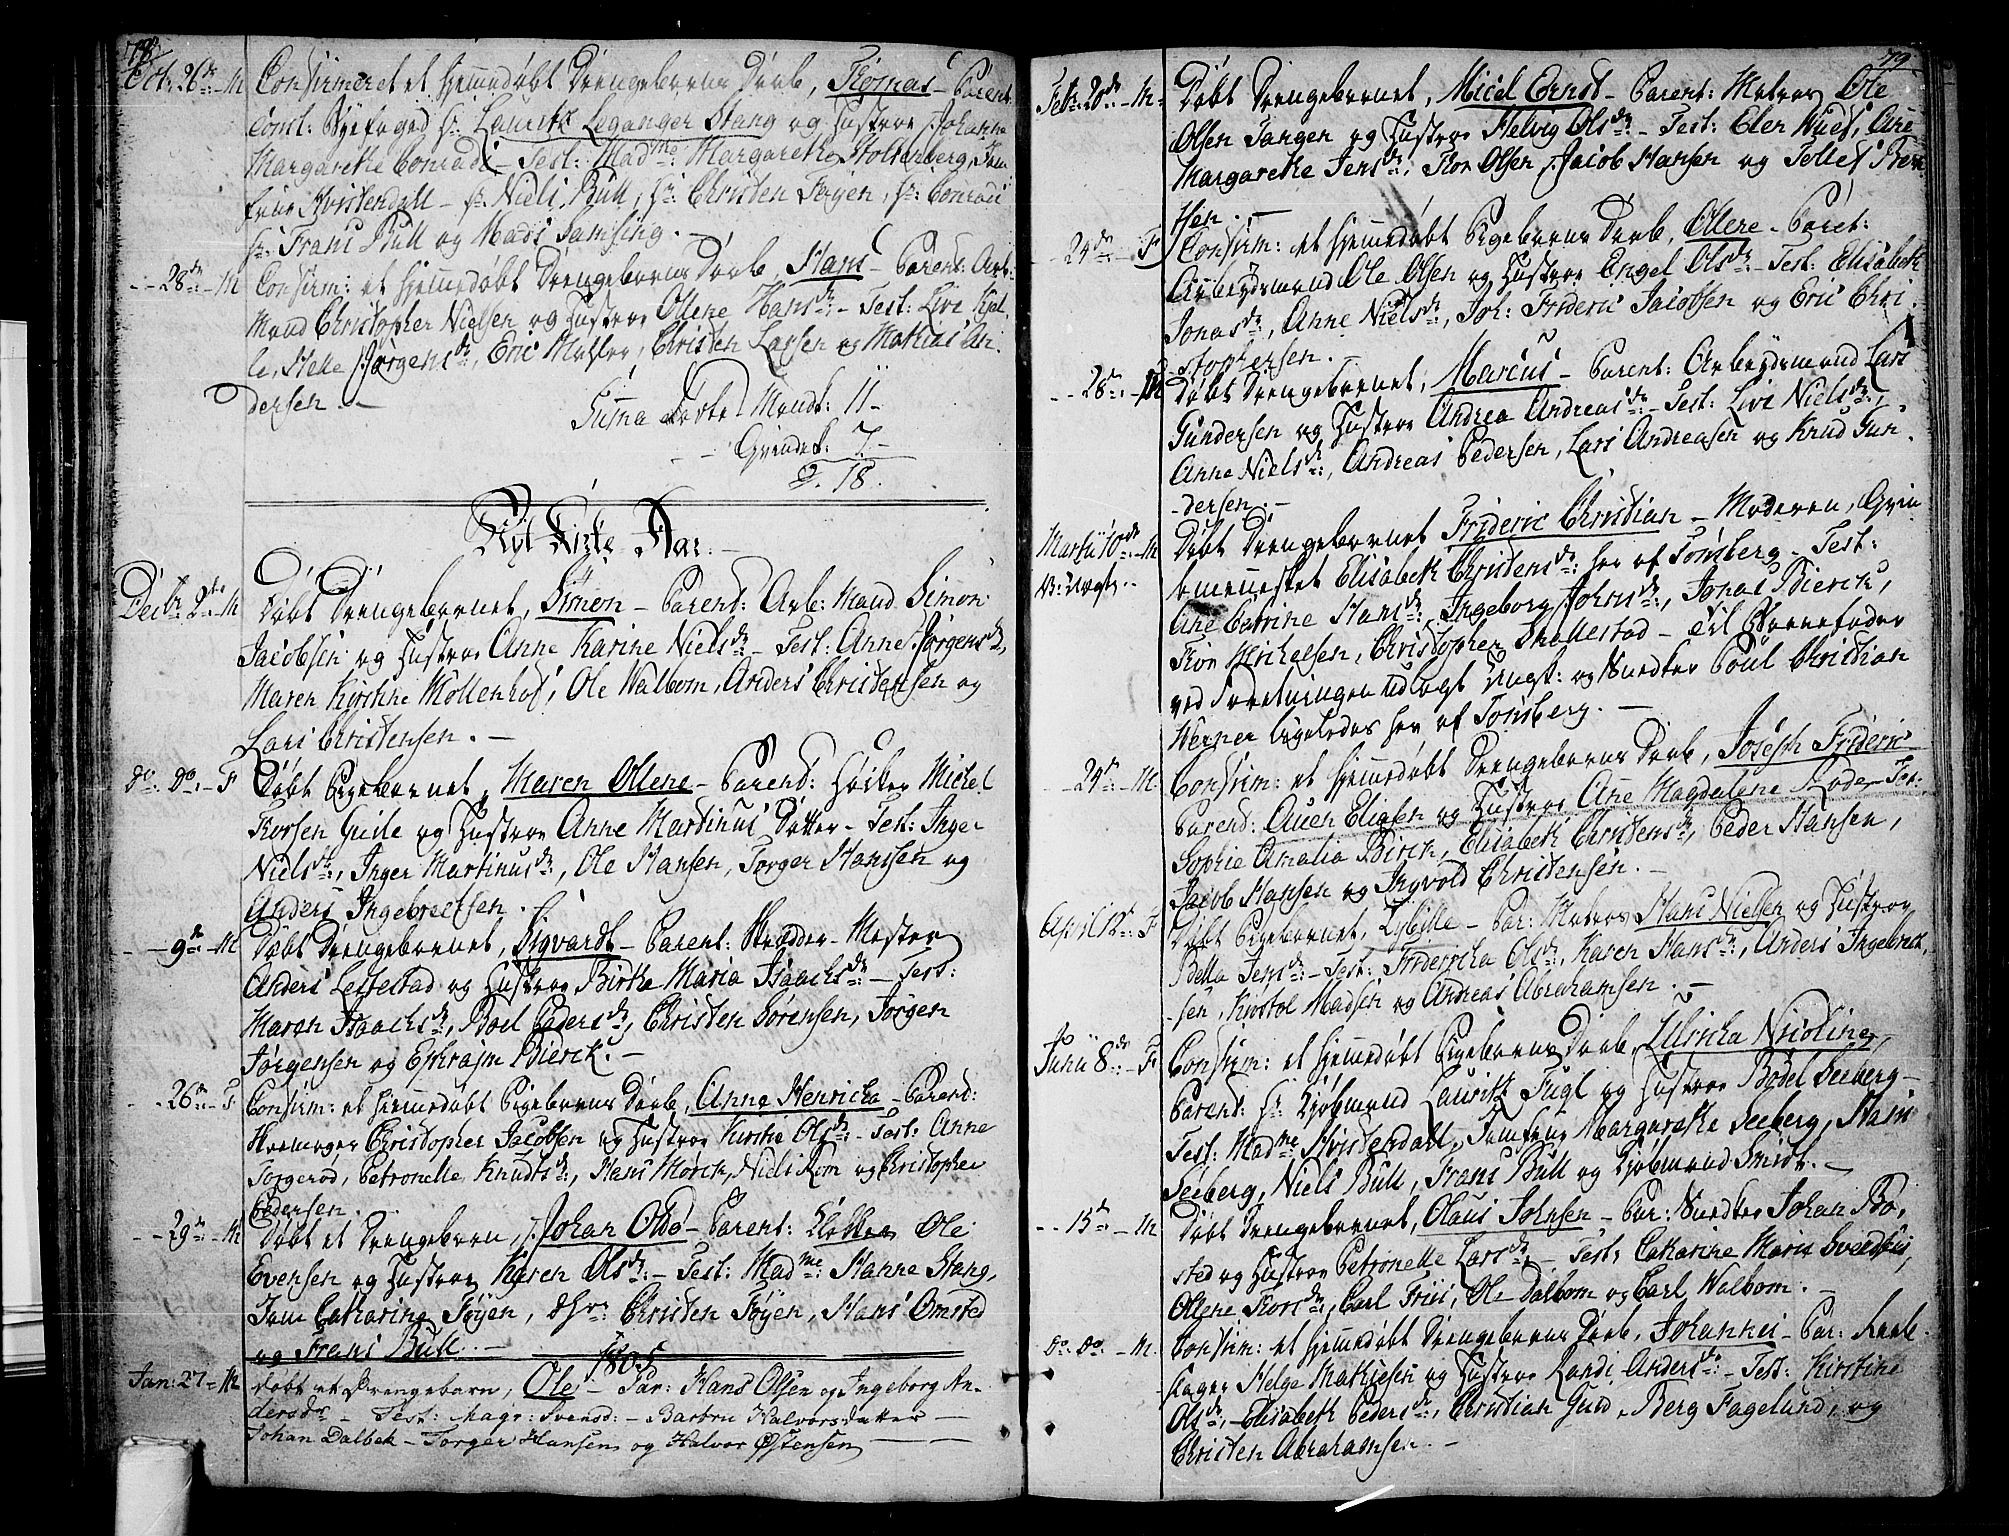 78.
Oct: 26de - M Confirmeret et hjemmedøbt Drengebarns Daab, Thomas - Parent:
Const: Byefoged Hr: Lauritz Leganger Stang og Hustroe Johanna
Margarethe Conradi - Test: Madme: Margarethe Stoltenberg, Jom-
frue Hvistendall - Hr: Niels Bull, Hr: Christen Føyen, Hr: Conradi
Hr: Frans Bull og Mads Samsing. -
- - 28de - M Confirm: et hjemmedøbt Drengebarns Daab, Hans - Parent: Arb:
Mand Christopher Nielsen og Hustroe Ollene Hansdr: - Test: Live Kjel-
le, Helle Jørgensdr, Eric Møller, Christen Larsen og Mathias An-
dersen. -
Suma Døbte Mandk: 11 -
- - Qvindek: 7 -
S. 18.
Nyt Kirke-Aar. -
Decbr: 2de - M Døbt Drengebarnet, Simon - Parent: Arb: Mand Simon
Jacobsen og Hustroe Anne Karine Nielsdr: - Test: Anne Jørgensdr,
Maren Kirstine Møllenhof, Ole Walbom, Anders Christensen og
Lars Christensen. -
do: do: - F Døbt Pigebarnet, Maren Ollene - Parent: Høcker Michel
Thorsen Guile og Hustroe Anne Martinus Datter - Test: Inger
Nielsdr:, Inger Martinusdr:, Ole Hansen, Torger Hanssen og
Anders Ingebrechtsen. -
- - 9de - M Døbt Drengebarnet, Sigvardt - Parent: Skrædder-Mester
Anders Lefsestad og Hustroe Birthe Maria Isaachsdr: - Test:
Maren Isaachsdr, Boel Pedersdr, Christen Sørensen, Jørgen
Jørgensen og Ephraim Bierch. -
- - 26de - F Confirm: et hjemmedøbt Pigebarns Daab, Anne Henricha - Parent:
Skomager Christopher Jacobsen og Hustroe Kirstie Olsdr: - Test: Anne
Torgerød, Petronelle Knudtsdr, Hans Mørch, Niels Rom og Christopher
Pedersen.
- - 29de - M Døbt et Drengebarn, Johan Otto - Parent: Klokker Ole
Evensen og Hustroe Karen Olsdr: - Test: Madme: Hanne Stang,
Jom Catharina Føyen, dHr: Christen Føyen, Hans Omsted
og Frans Bull. -
1805
Jan: 27 - M døbt et Drengebarn, Ole - Par: Hans Olsen og Ingeborg An-
dersdr - Test: Magr: Svensd: - Barbru Halvorsdatter -
Johan Dalbek - Torger Hansen og Halvor Østensen
79.
Febr: 20de - M - Døbt Drengebarnet, Micel Ernst - Parent: Matros Ole
Olsen Tangen og Hustroe Helvig Olsdr - Test: Elen Huus, Ane
Margarethe Jensdr:, Thor Olsen, Jacob Hansen og Tollef Bern-
tsen. -
- - 24de - F Confirm: et hjemmedøbt Pigebarns Daab, Ollene - Paret:
Arbeydsmand Ole Olsen og Hustroe Engel Olsdr: - Test: Elisabeth
Jonasdr, Anne Nielsdr:, Joh: Frideric Jacobsen og Eric Chri-
stophersen. -
- - 28de - M Døbt Drengebarnet, Marcus - Parent: Arbeydsmand Lars
Gundersen og Hustroe Andrea Andreasdr: - Test: Live Nielsdr:,
Anne Nielsdr:, Andreas Pedersen, Lars Andreasen og Knud Gun-
dersen. -
Martii 10de - M Døbt Drengebarnet Frideric Christian - Moderen, Qvin-
B: Uægte - demennesket Elisabeth Christensdr: her af Tønsberg - Test:
Ane Catrine Hansdr:, Ingeborg Johnsdr:, Jonas Bierch,
Thor Michelsen, Christopher Skallestad - Til Barnefader
ved Forretningen udlagt Ungk: og Snedker Poul Christian
Werner ligeledes her af Tønsberg. -
- - 24de - M. Confirm: et hjemmedøbt Drengebarns Daab, Joseph Frideric
Parent: Auen Eliasen og Hustroe Ane Magdalene Rode, Test:
Sophie Amalia Birch, Elisabeth Christensdr, Peder Hansen,
Jacob Hansen og Ingvold Christensen. -
April 12te: F Døbt Pigebarnet, Sybille - Par: Matros Hans Nielsen og Hustroe
Bella Jensdr: - Test: Friderrcha Olsdr, Karen Hansdr:, Anders Ingebrecht-
sen, Kirstol Madsen og Andreas Abrahamsen. -
Junii 8de: - F Confirm: et hjemmedøbt Pigebarns Daab, Ulricha Nicoline,
Parent: Hr: Kjøbmand Lauritz Fugl og Hustroe Bodel Seeberg -
Test: Madme Hvistendall, Jomfrue Margarethe Seeberg, Hans
Seeberg, Niels Bull, Frans Bull og Kjøbmand Smidt. -
- - 15de - M Døbt Drengebarnet, Olaus Johnsen - Par: Snedker Johan Bo-
sted og Hustroe Petronelle Larsdr - Test: Catharine Maria Svendsen,
Ollene Thorsdr:, Carl Friis, Ole Dalbom og Carl Walbom. -
do: do: - M. Confirm: et hjemmedøbt Drengebarns Daab, Johannes - Par: Rræb-
slager Helge Mathiesen og Hustroe Randi Andersdr: - Test: Kirstine
Olsdr, Elisabeth Pedersdr:, Christian Guld, Berg Fagelund, og
Christen Abrahamsen. -